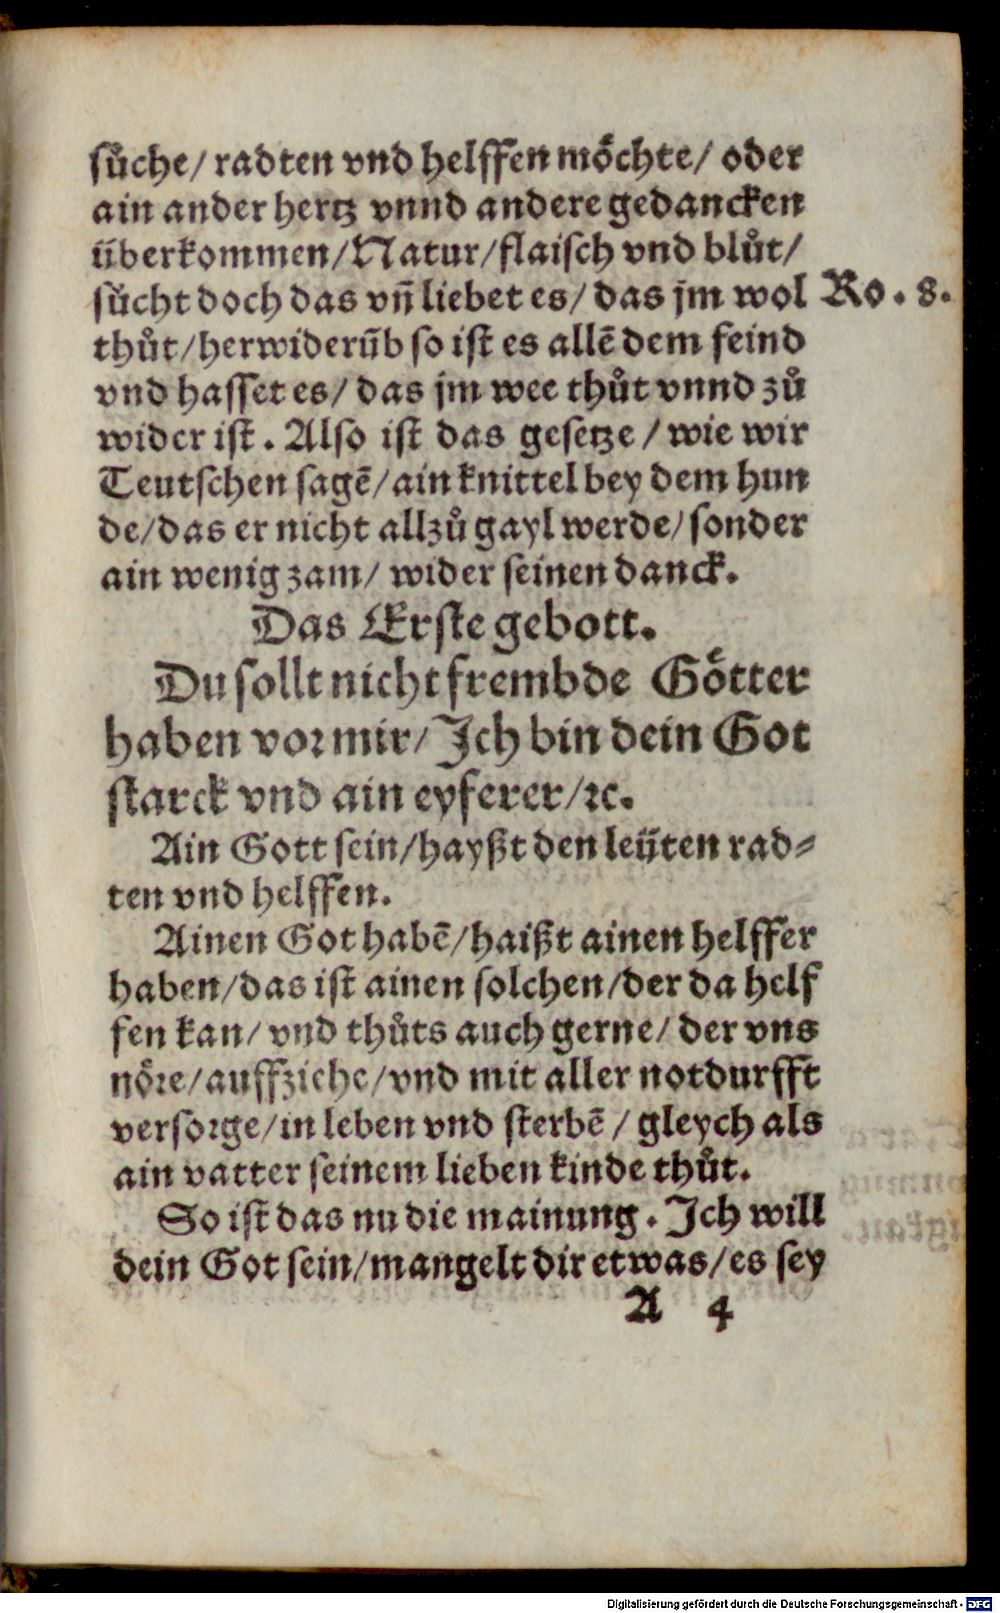 sůche/ radten vnd helffen moͤchte/ oder
ain ander hertz vnnd andere gedancken
überkommen/Natur/flaisch vnd blůt/
sůcht doch das vñ liebet es/ das jm wol Ro. 8.
thůt/herwiderūb so ist es allē dem feind
vnd hasset es/ das jm wee thůt vnnd zů
wider ist. Also ist das gesetze/ wie wir
Teutschen sagē/ain knittel bey dem hun
de/das er nicht allzů gayl werde/sonder
ain wenig zam/ wider seinen danck.
Das Erste gebott.
Du sollt nicht frembde Goͤtter
haben vor mir/ Ich bin dein Got
starck vnd ain eyferer/ꝛc.
Ain Gott sein/hayßt den leüten rad⸗
ten vnd helffen.
Ainen Got habē/haißt ainen helffer
haben/das ist ainen solchen/der da helf
fen kan/ vnd thůts auch gerne/ der vns
noͤre/auffziehe/vnd mit aller notdurfft
versorge/in leben vnd sterbē/ gleych als
ain vatter seinem lieben kinde thůt.
So ist das nu die mainung. Ich will
dein Got sein/mangelt dir etwas/es sey
A 4
Digitalisierung gefördert durch die Deutsche Forschungsgemeinschaft - DFG